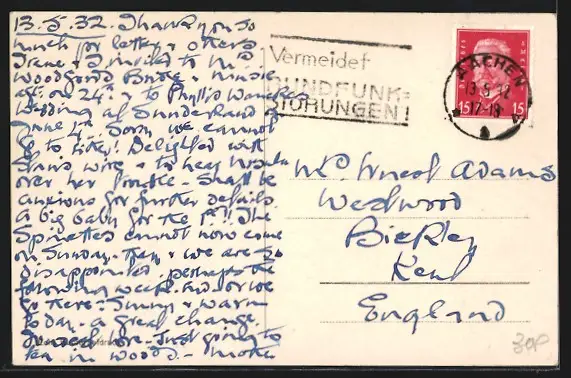 13.5.32. Thank you so
much for letter & others
Irene & I invited to Mrs
Woodgood Bridge & Music
aft. on 24th & to Phyllis
Wedding at Sunderland on
June 4th. Sorry we cannot
go to either! Delighted with
wire & to hear
over her trouble - Shall be
anxious for further details.
A big baby for the 1st!! The
Spinettes cannot now come
on Sunday. They & we are so
disappointed. perhaps the
following week-end or we
go there. Sunny & warm
today - a great change.
Just going to
tea in woods. - more
Vermeidet
RUNDFUNK=
STÖRUNGEN!
AACHEN
13.5.32
17-18
15 15
Mrs Ernest Adams
Westwood
Bickley
Kent
England
30P